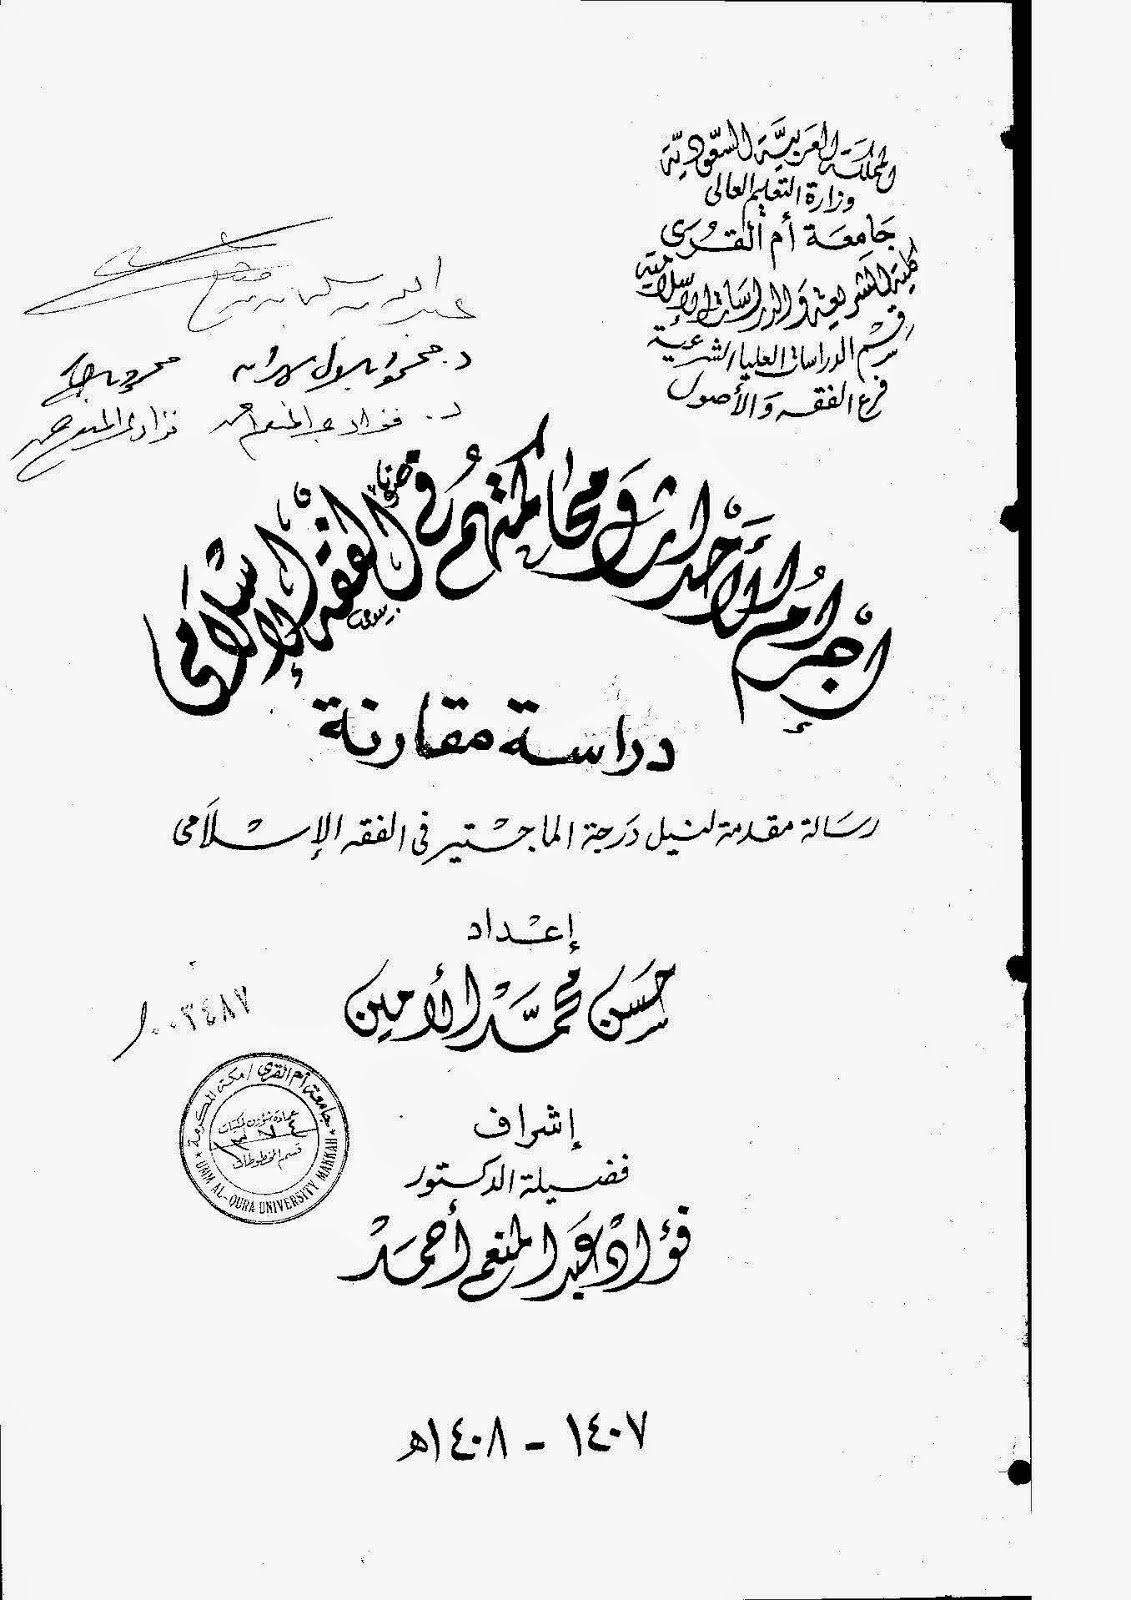 المملكة العربية السعودية
وزارة التعليم العالى
جامعة أم القرى
كلية الشريعة والدراسات الإسلامية
قسم الدراسات العليا الشرعية
فرع الفقه والأصول
د. محمود
د. فؤاد عبد المنعم أحمد
إجرام الأحداث ومحاكمتهم فى الفقه الإسلامى
دراسة مقارنة
رسالة مقدمة لنيل درجة الماجستير فى الفقه الإسلامى
إعداد
حسن محمد الأمين
٠٠٣٤٨٧
جامعة أم القرى / مكة المكرمة
عمادة شؤون المكتبات
قسم المخطوطات
UMM AL-QURA UNIVERSITY MAKKAH
إشراف
فضيلة الدكتور
فؤاد عبد المنعم أحمد
١٤٠٧ - ١٤٠٨هـ